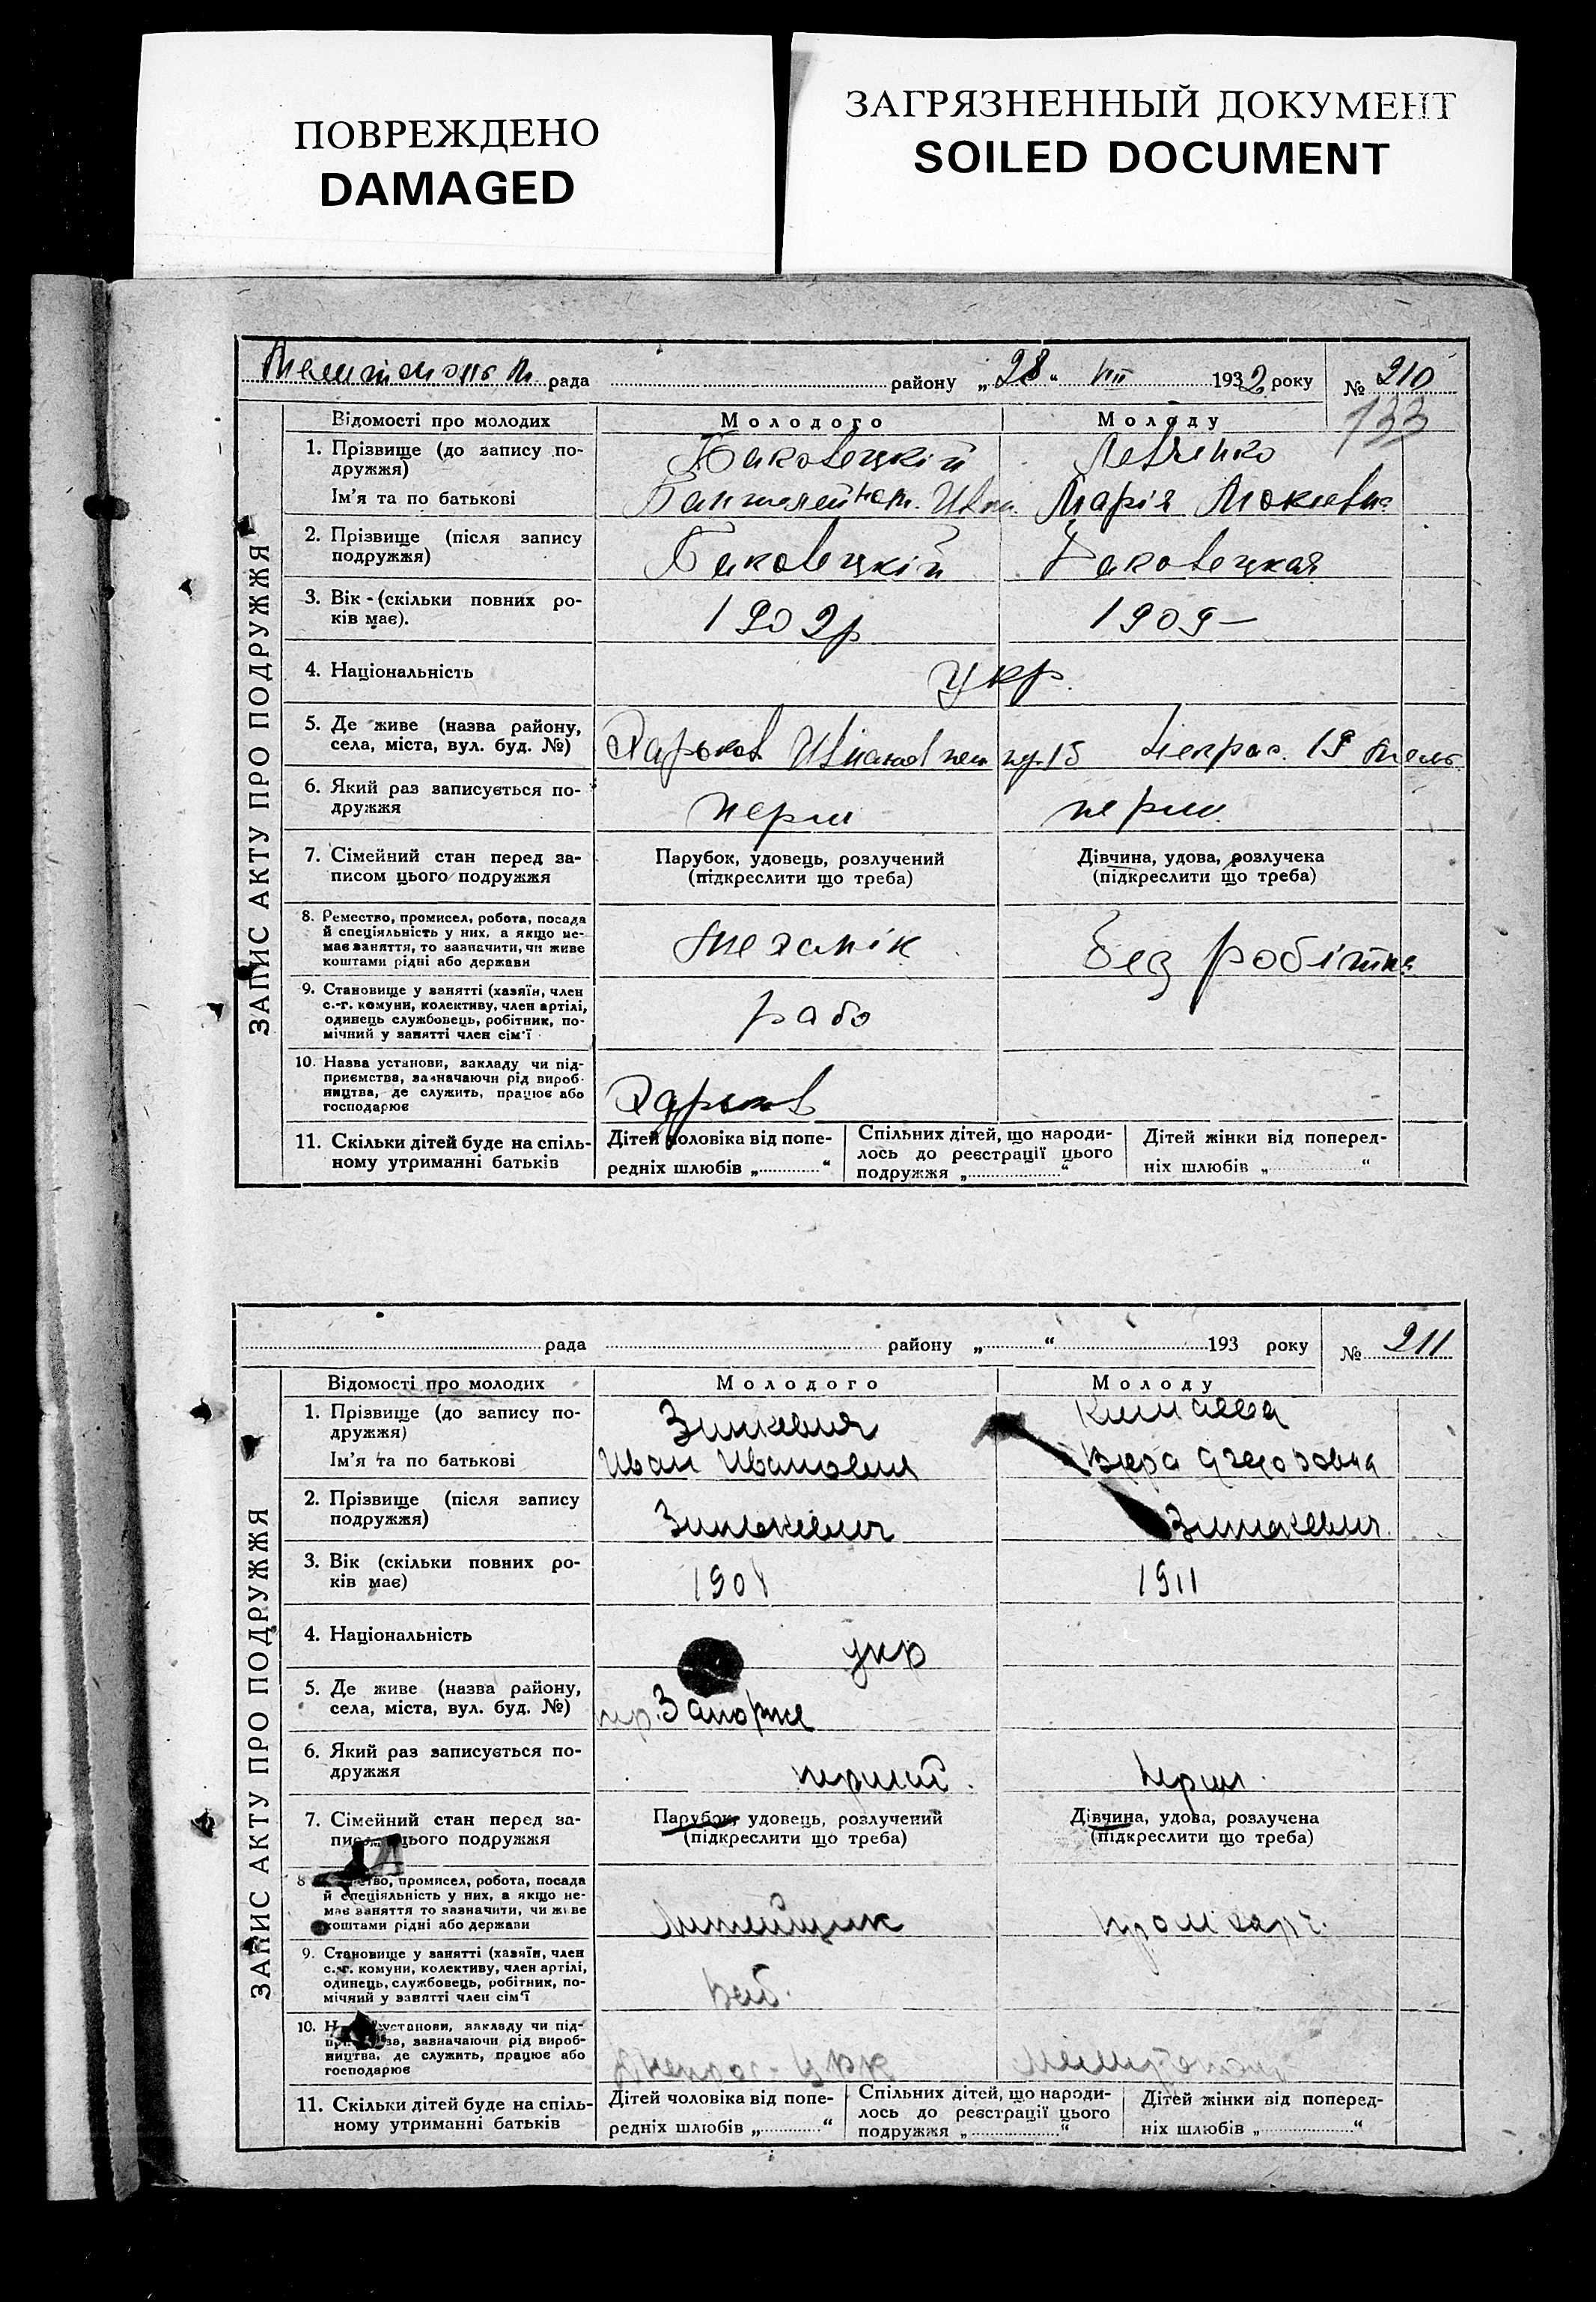 ПОВРЕЖДЕНО
DAMAGED
ЗАГРЯЗНЕННЫЙ ДОКУМЕНТ
SOILED DOCUMENT
рада району „ 28 “ VIII 1932 року № 210
133
ЗАПИС АКТУ ПРО ПОДРУЖЖЯ
Відомості про молодих Молодого Молоду
1. Прізвище (до запису по-
дружжя) Левченко
Ім'я та по батькові Марія
2. Прізвище (після запису
подружжя) Баковецкій Баковецкая
3. Вік - (скільки повних ро-
ків має). 1902р 1909-
4. Національність укр.
5. Де живе (назва району,
села, міста, вул. буд. №) Харьков 15 19
6. Який раз записується по-
дружжя перш перш.
7. Сімейний стан перед за-
писом цього подружжя
Парубок, удовець, розлучений
(підкреслити що треба)
Дівчина, удова, розлучека
(підкреслити що треба)
8. Ремество, промисел, робота, посада
й спеціяльність у них, а якщо не-
має заняття, то зазначити, чи живе
коштами рідні або держави
механік без робітна
9. Становище у занятті (хазяїн, член
с.-г. комуни, колективу, член артілі,
одинець службовець, робітник, по-
мічний у занятті член сім'ї
рабо
10. Назва установи, закладу чи під-
приємства, зазначаючи рід вироб-
ництва, де служить, працює або
господарює
Харьков
11. Скільки дітей буде на спіль-
ному утриманні батьків
Дітей чоловіка від попе-
редніх шлюбів „ “
Спільних дітей, що народи-
лось до реєстрації цього
подружжя „ “
Дітей жінки від поперед-
ніх шлюбів „ “
рада району „ “ 193 року № 211
ЗАПИС АКТУ ПРО ПОДРУЖЖЯ
Відомості про молодих Молодого Молоду
1. Прізвище (до запису по-
дружжя) Зинкевич
Ім'я та по батькові Иван Иванович Вера
2. Прізвище (після запису
подружжя) Зинькевич Зинькевич
3. Вік (скільки повних ро-
ків має) 1901 1911
4. Національність укр
5. Де живе (назва району,
села, міста, вул. буд. №)
6. Який раз записується по-
дружжя перший. перш.
7. Сімейний стан перед за-
писом цього подружжя
Парубок, удовець, розлучений
(підкреслити що треба)
Дівчина, удова, розлучена
(підкреслити що треба)
8 промисел, робота, посада
й спеціяльність у них, а якщо не-
має заняття то зазначити, чи живе
коштами рідні або держави
Литейщик
9. Становище у занятті (хазяїн, член
с.-г. комуни, колективу, член артілі,
одинець, службовець, робітник, по-
мічний у занятті член сім'ї
10. установи, закладу чи під-
зазначаючи рід вироб-
ництва, де служить, працює або
господарює
11. Скільки дітей буде на спіль-
ному утриманні батьків
Дітей чоловіка від попе-
редніх шлюбів „ “
Спільних дітей, що народи-
лось до реєстрації цього
подружжя „ “
Дітей жінки від поперед-
ніх шлюбів „ “